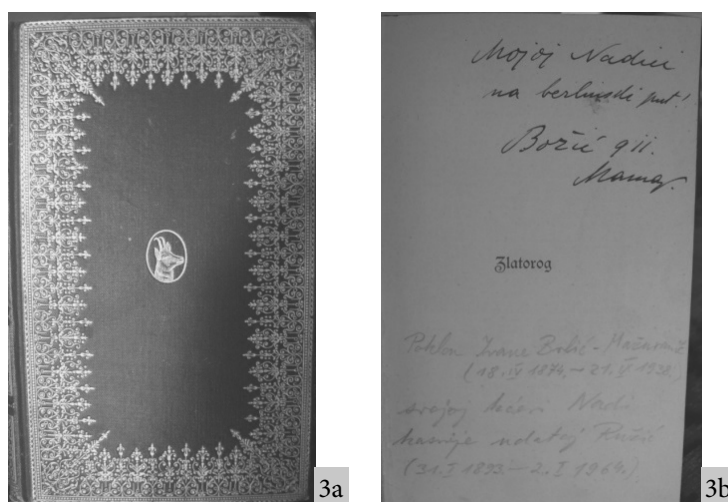 3a
Mojoj Nadici
na berlinski put!
Božić 911.
Mama.
Zlatorog
Poklon Ivane Brlić-Mažuranić
(18. IV 1874. – 21. 1938)
svojoj kćeri Nadi
kasnije udatoj Ružić
(31. I 1893 – 2. I 1969.)
3b